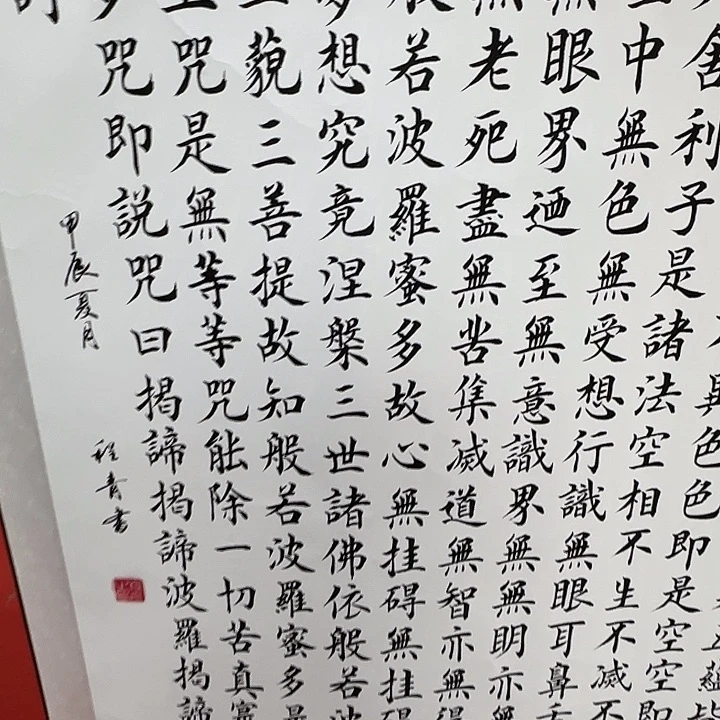 蘊皆
異色色即是空空即
舍利子是諸法空相不生不滅不
中無色無受想行識無眼耳鼻舌
無眼界迺至無意識界無無明亦無
無老死盡無苦集滅道無智亦無得
般若波羅蜜多故心無挂碍無挂碍
多想究竟涅槃三世諸佛依般若波
三藐三菩提故知般若波羅蜜多是
上咒是無等等咒能除一切苦真實
多咒即說咒曰揭諦揭諦波羅揭諦
甲辰夏月
程青書